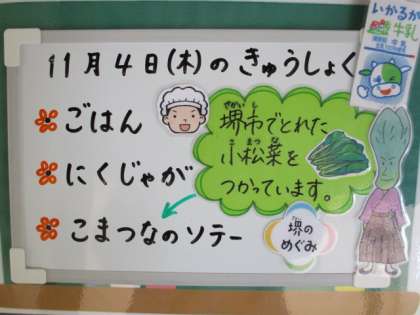 11月4日(木)のきゅうしょく
ごはん
にくじゃが
こまつなのソテー
堺市でとれた
小松菜を
つかっています。
堺の
めぐみ
いかるが
牛乳